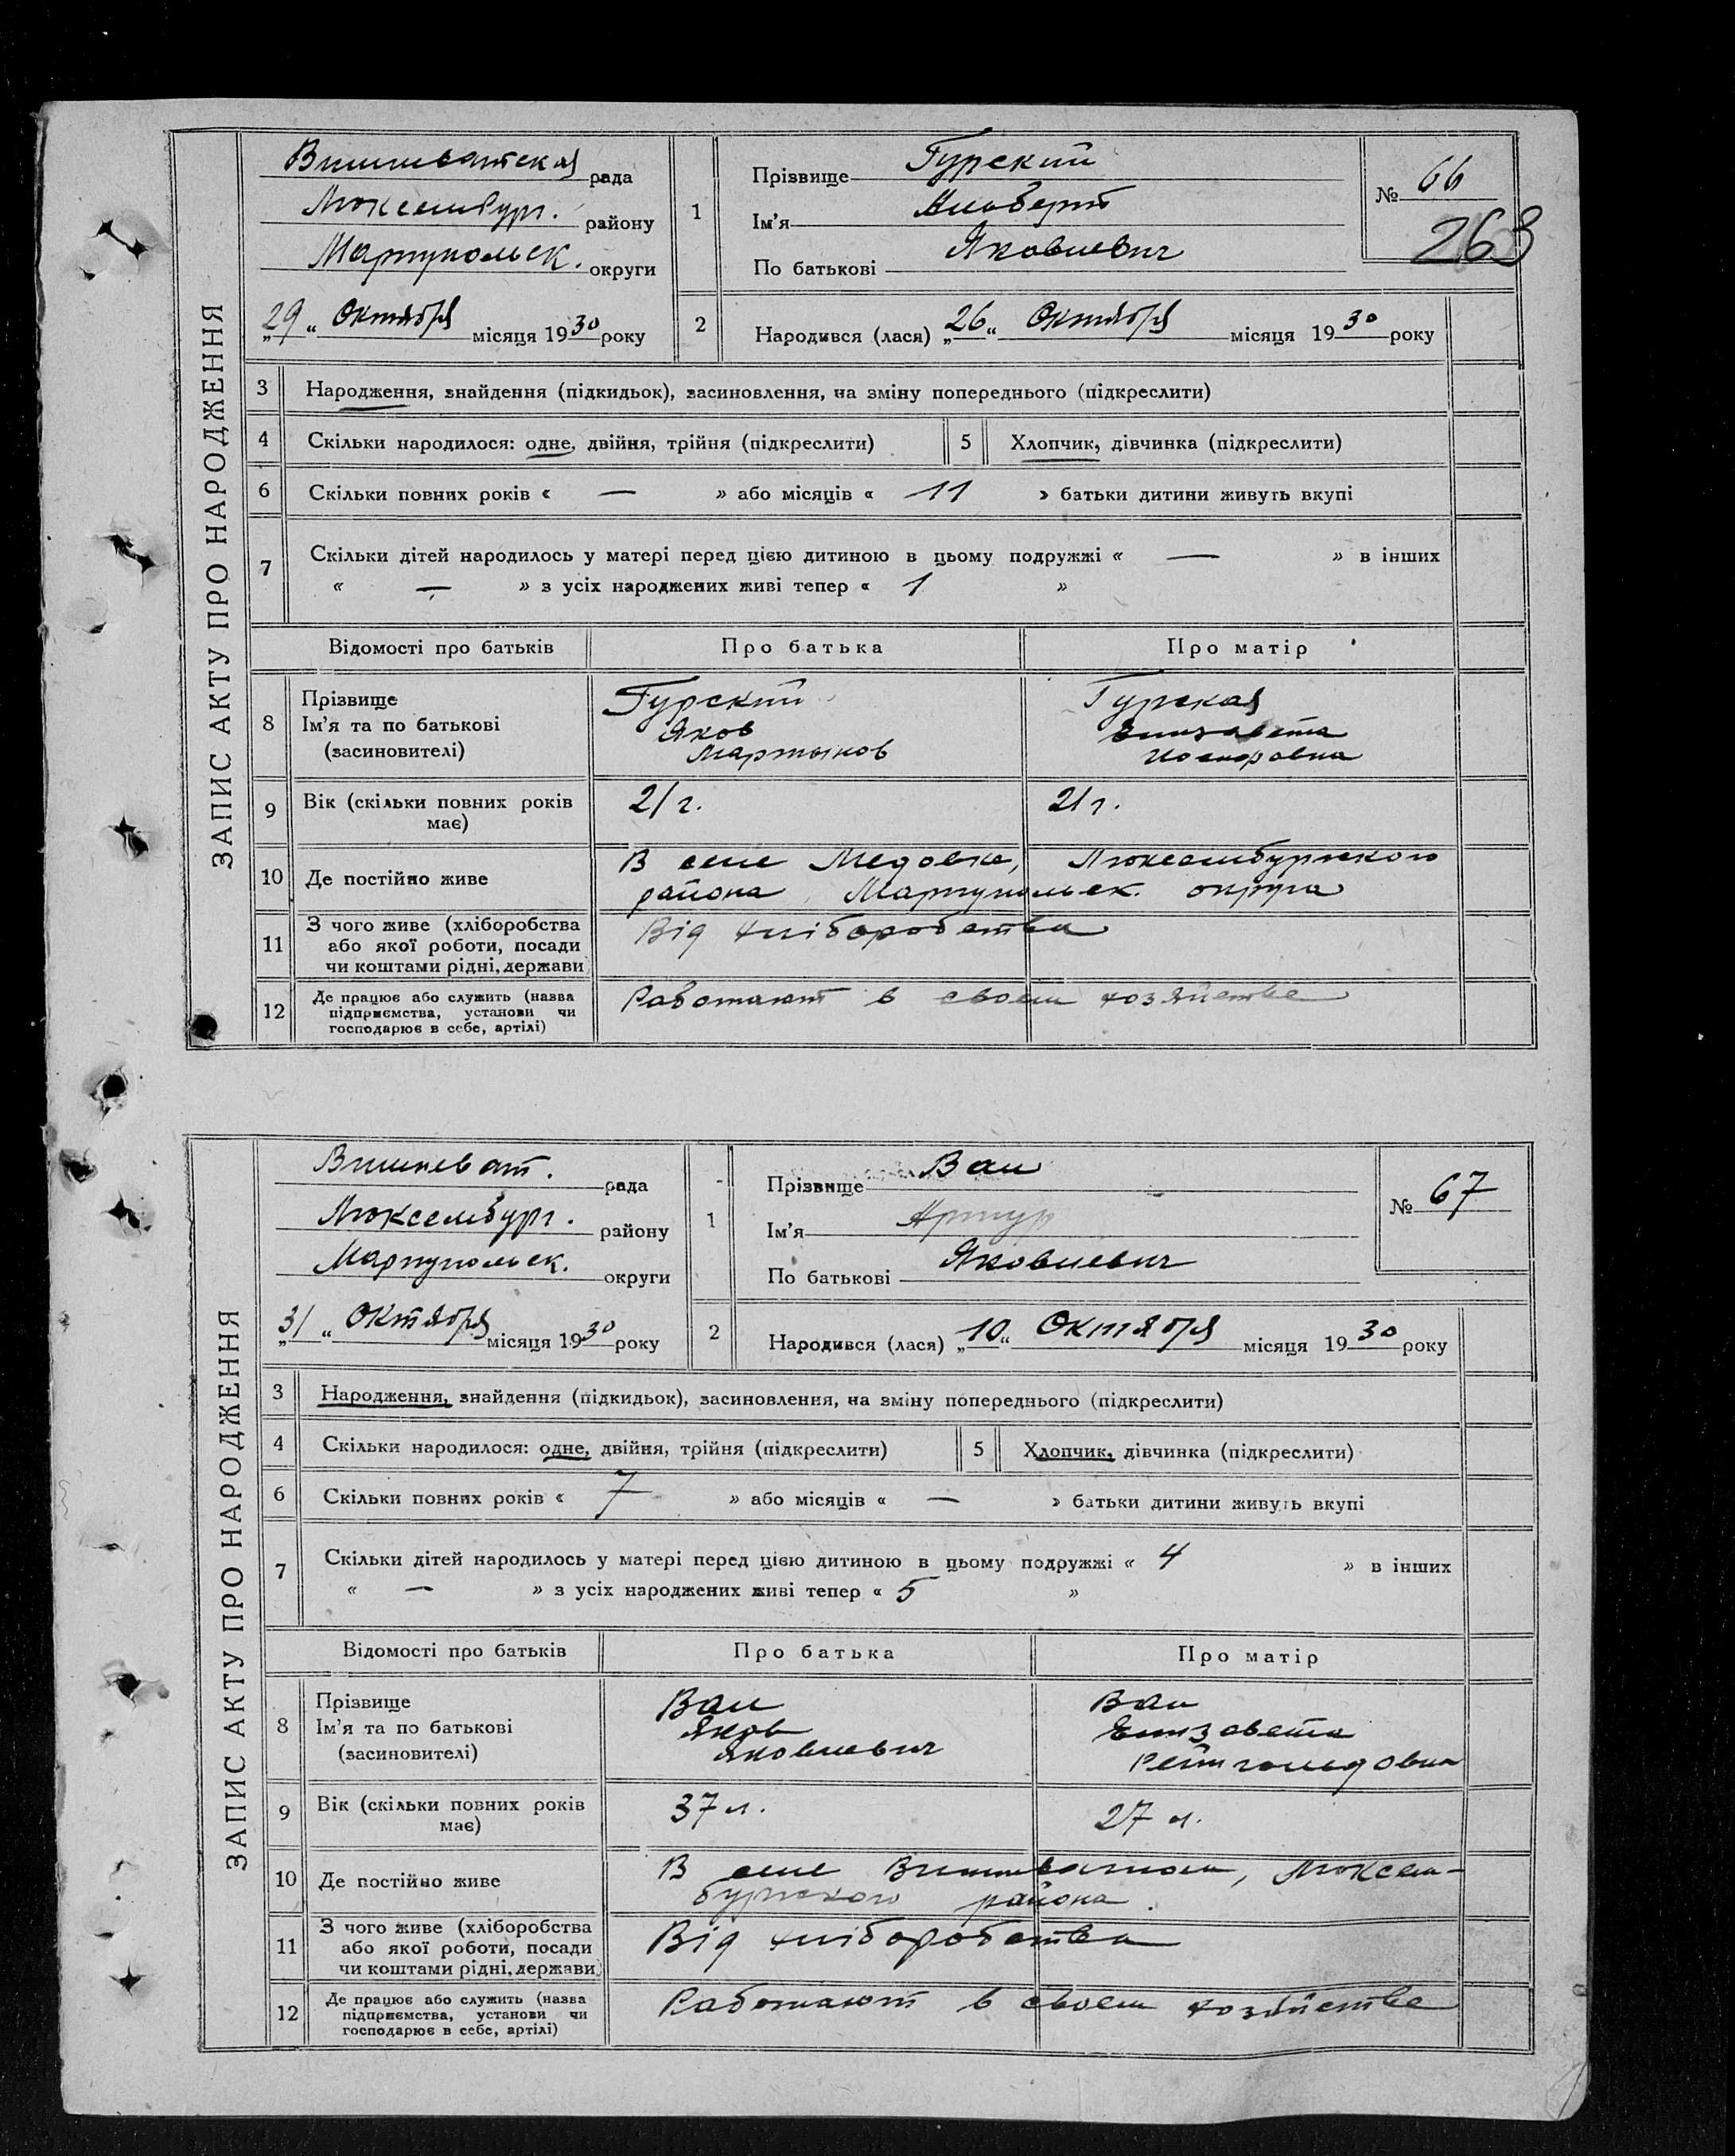 ЗАПИС АКТУ ПРО НАРОДЖЕННЯ
Вишневатская рада
Люксембург. району
Мариупольск. округи
„29“ Октября місяця 1930 року
1
Прізвище Гурский
Ім'я Альберт
По батькові Яковлевич
№ 66
263
2
Народився (лася) „26“ Октября місяця 1930 року
3 Народження, знайдення (підкидьок), засиновлення, на зміну попереднього (підкреслити)
4 Скільки народилося: одне, двійня, трійня (підкреслити) 5 Хлопчик, дівчинка (підкреслити)
6 Скільки повних років « — » або місяців « 11 » батьки дитини живуть вкупі
7 Скільки дітей народилось у матері перед цією дитиною в цьому подружжі « — » в інших
« — » з усіх народжених живі тепер « 1 »
Відомості про батьків Про батька Про матір
8 Прізвище
Ім'я та по батькові
(засиновителі)
Гурский
Яков
Мартынов
Гурская
Елизавета
9 Вік (скільки повних років
має)
21 г. 21 г.
10 Де постійно живе
В селе Медовке, Люксембургского
района Мариупольск. округа
11 З чого живе (хліборобства
або якої роботи, посади
чи коштами рідні, держави)
Від хліборобства
12 Де працює або служить (назва
підприємства, установи чи
господарює в себе, артілі)
Работают в своем хозяйстве
ЗАПИС АКТУ ПРО НАРОДЖЕННЯ
Вишневат. рада
Люксембург. району
Мариупольск. округи
„31“ Октября місяця 1930 року
1
Прізвище Вал
Ім'я Артур
По батькові Яковлевич
№ 67
2
Народився (лася) „10“ Октября місяця 1930 року
3 Народження, знайдення (підкидьок), засиновлення, на зміну попереднього (підкреслити)
4 Скільки народилося: одне, двійня, трійня (підкреслити) 5 Хлопчик, дівчинка (підкреслити)
6 Скільки повних років « 7 » або місяців « — » батьки дитини живуть вкупі
7 Скільки дітей народилось у матері перед цією дитиною в цьому подружжі « 4 » в інших
« — » з усіх народжених живі тепер « 5 »
Відомості про батьків Про батька Про матір
8 Прізвище
Ім'я та по батькові
(засиновителі)
Вал
Яков
Яковлевич
Вал
Елизавета
Рейнгольдовна
9 Вік (скільки повних років
має)
37 л. 27 л.
10 Де постійно живе
В селе Вишневатом, Люксем-
бургского района.
11 З чого живе (хліборобства
або якої роботи, посади
чи коштами рідні, держави)
Від хліборобства
12 Де працює або служить (назва
підприємства, установи чи
господарює в себе, артілі)
Работают в своем хозяйстве